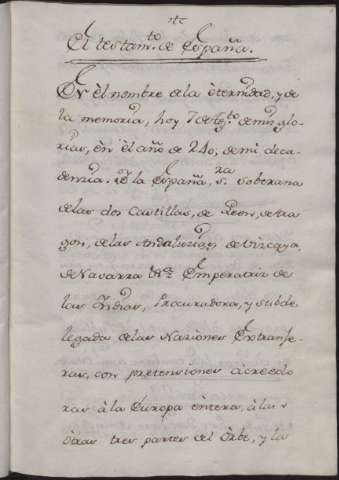 El testam.to de España.
En èl nombre de la èternidad, y de
la memoria, hoy 7 de Ag.to de mis glo-
rias, èn èl año de 240, de mi deca-
dencia. Yo la España, s.ra soberana
de las dos Castillas, de Leon, de Ara
gon, de las Andalucias, de Vizcaya,
de Navarra &.a Emperatriz de
las Indias, Procuradora, y subde
legada de las Naciones Extranje-
ras, con pretensiones à creedo
ras à la Europa èntera, à las
òtras tres partes del Òrbe, y la